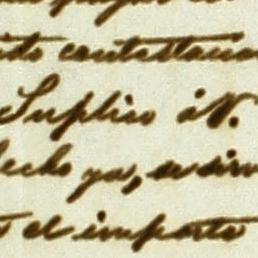 contestacion
Suplico á V.
hecho ya, se sirv
el importe